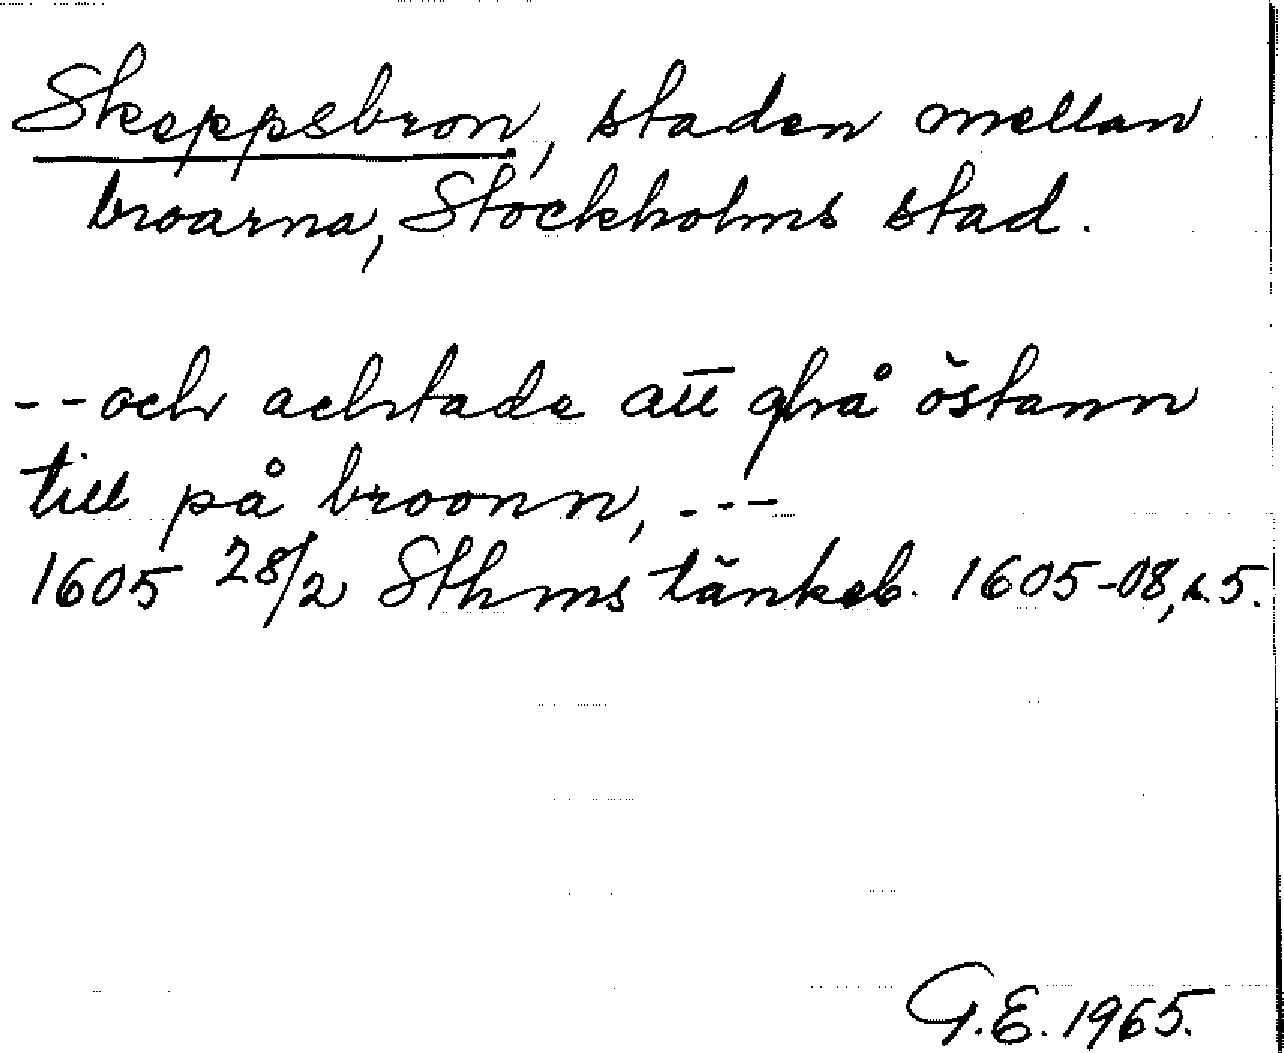 Skeppsbron, staden mellan
broarna, Stockholms stad.
--och achtade att ghå östann
till på broonn, ---
1605 28/2 Sthms tänkeb. 1605-08, s. 5.
G.E. 1965.